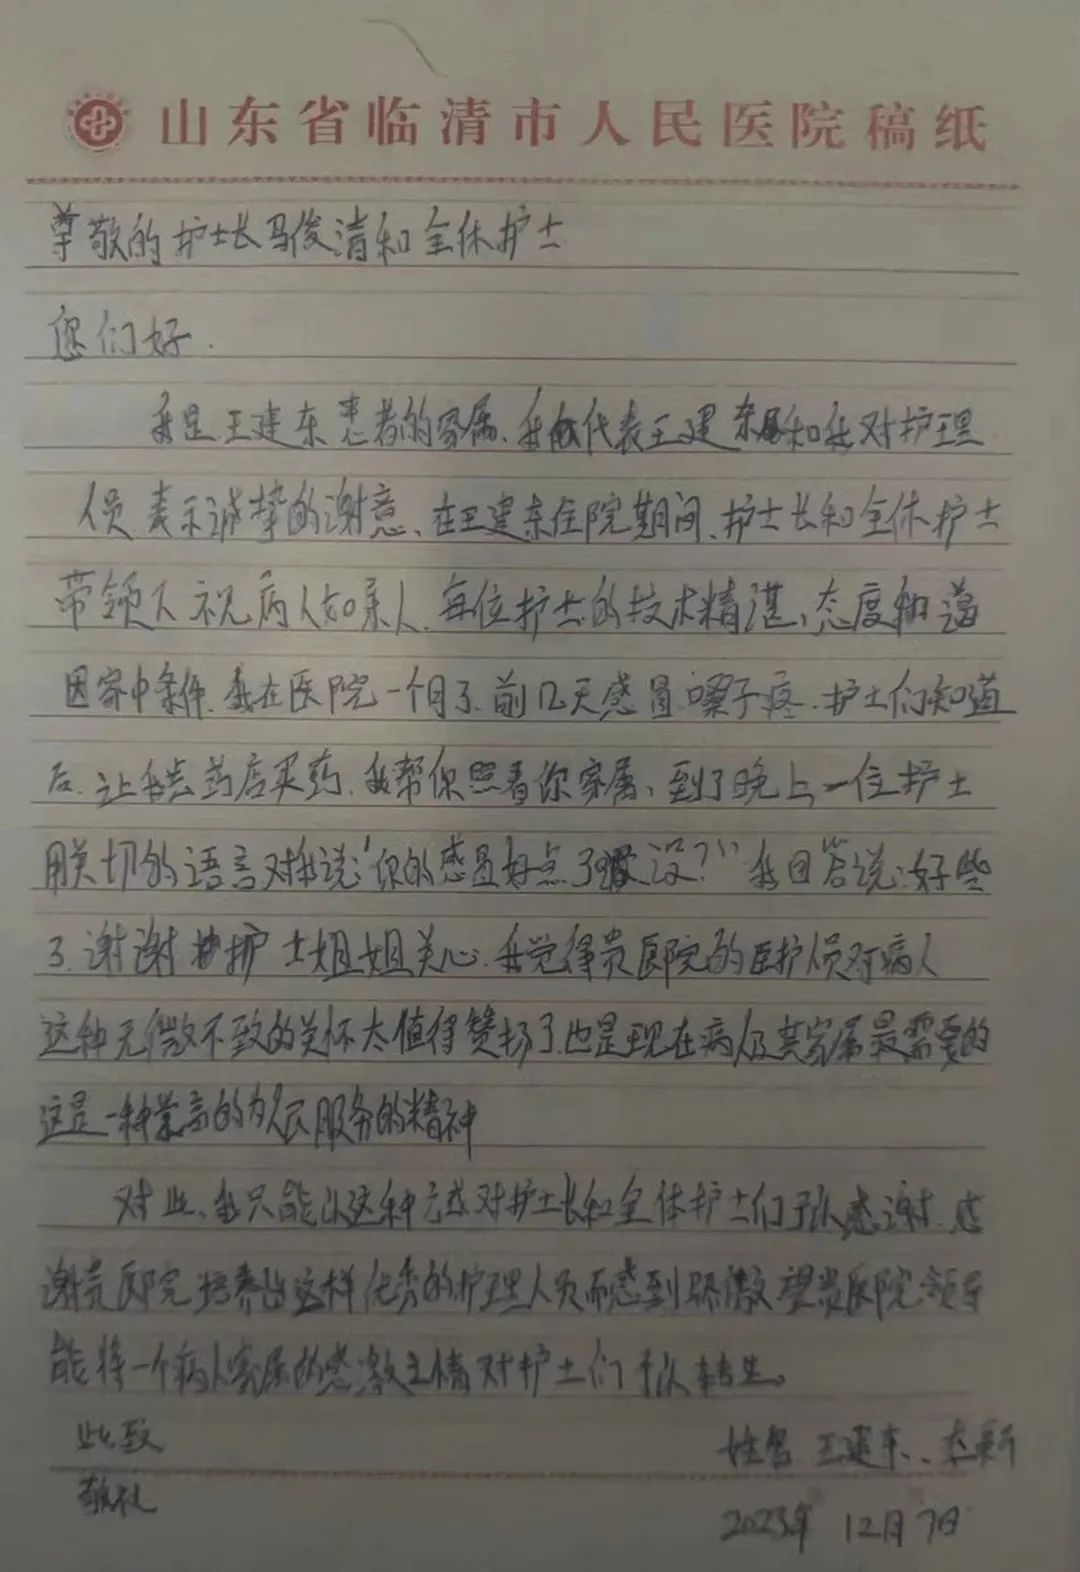 山东省临清市人民医院稿纸
尊敬的护士长马俊清和全体护士
您们好.
我是王建东患者的家属、我代表王建东和我对护理
人员表示诚挚的谢意、在王建东住院期间、护士长和全体护士
带领下视病人如亲人.每位护士的技术精湛,态度和蔼
因家中条件.我在医院一个月了.前几天感冒嗓子疼.护士们知道
后.让我去药店买药.我帮你照看你家属、到了晚上一位护士
用关切的语言对我说:"你的感冒好点了没?"我回答说:好些
了.谢谢护士姐姐关心.我觉得贵医院的医护人员对病人
这种无微不致的关怀太值得赞扬了.也是现在病人及其家属最需要的
这是一种崇高的为人民服务的精神
对此、我只能以这种方式对护士长和全体护士们予以感谢.感
谢贵医院培养出这样优秀的护理人员而感到骄傲望贵医院领导
能将一个病人家属的感激之情对护士们予以转告。
此致
敬礼
姓名 王建东、李新
2023年12月7日